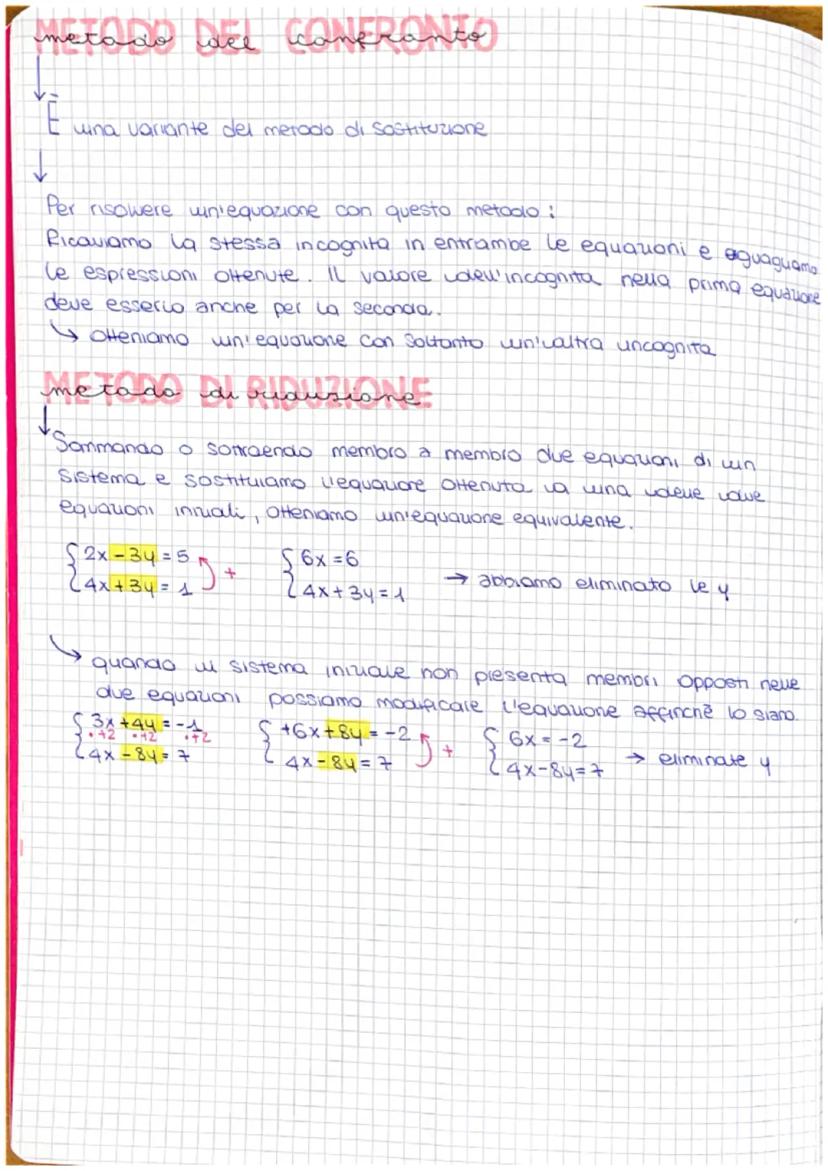 metodo del confronto
È una variante del metodo di sostituzione
Per risolvere un'equazione con questo metodo:
Ricaviamo la stessa incognita in entrambe le equazioni e eguagliamo
le espressioni ottenute. Il valore dell'incognita nella prima equazione
deve esserlo anche per la seconda.
↳ otteniamo un'equazione con soltanto un'altra incognita
metodo di riduzione
Sommando o sottraendo membro a membro due equazioni di un
sistema e sostituiamo l'equazione ottenuta a una delle due
equazioni iniziali, otteniamo un'equazione equivalente.
{2x-3y=5 + {6x=6
{4x+3y=1 {4x+3y=1 → abbiamo eliminato le y
↳ quando il sistema iniziale non presenta membri opposti nelle
due equazioni possiamo modificare l'equazione affinchè lo siano.
{3x+4y=-1 {+6x+8y=-2 + {6x=-2
·+2 ·+2 ·+2
{4x-8y=7 {4x-8y=7 {4x-8y=7 → eliminate y